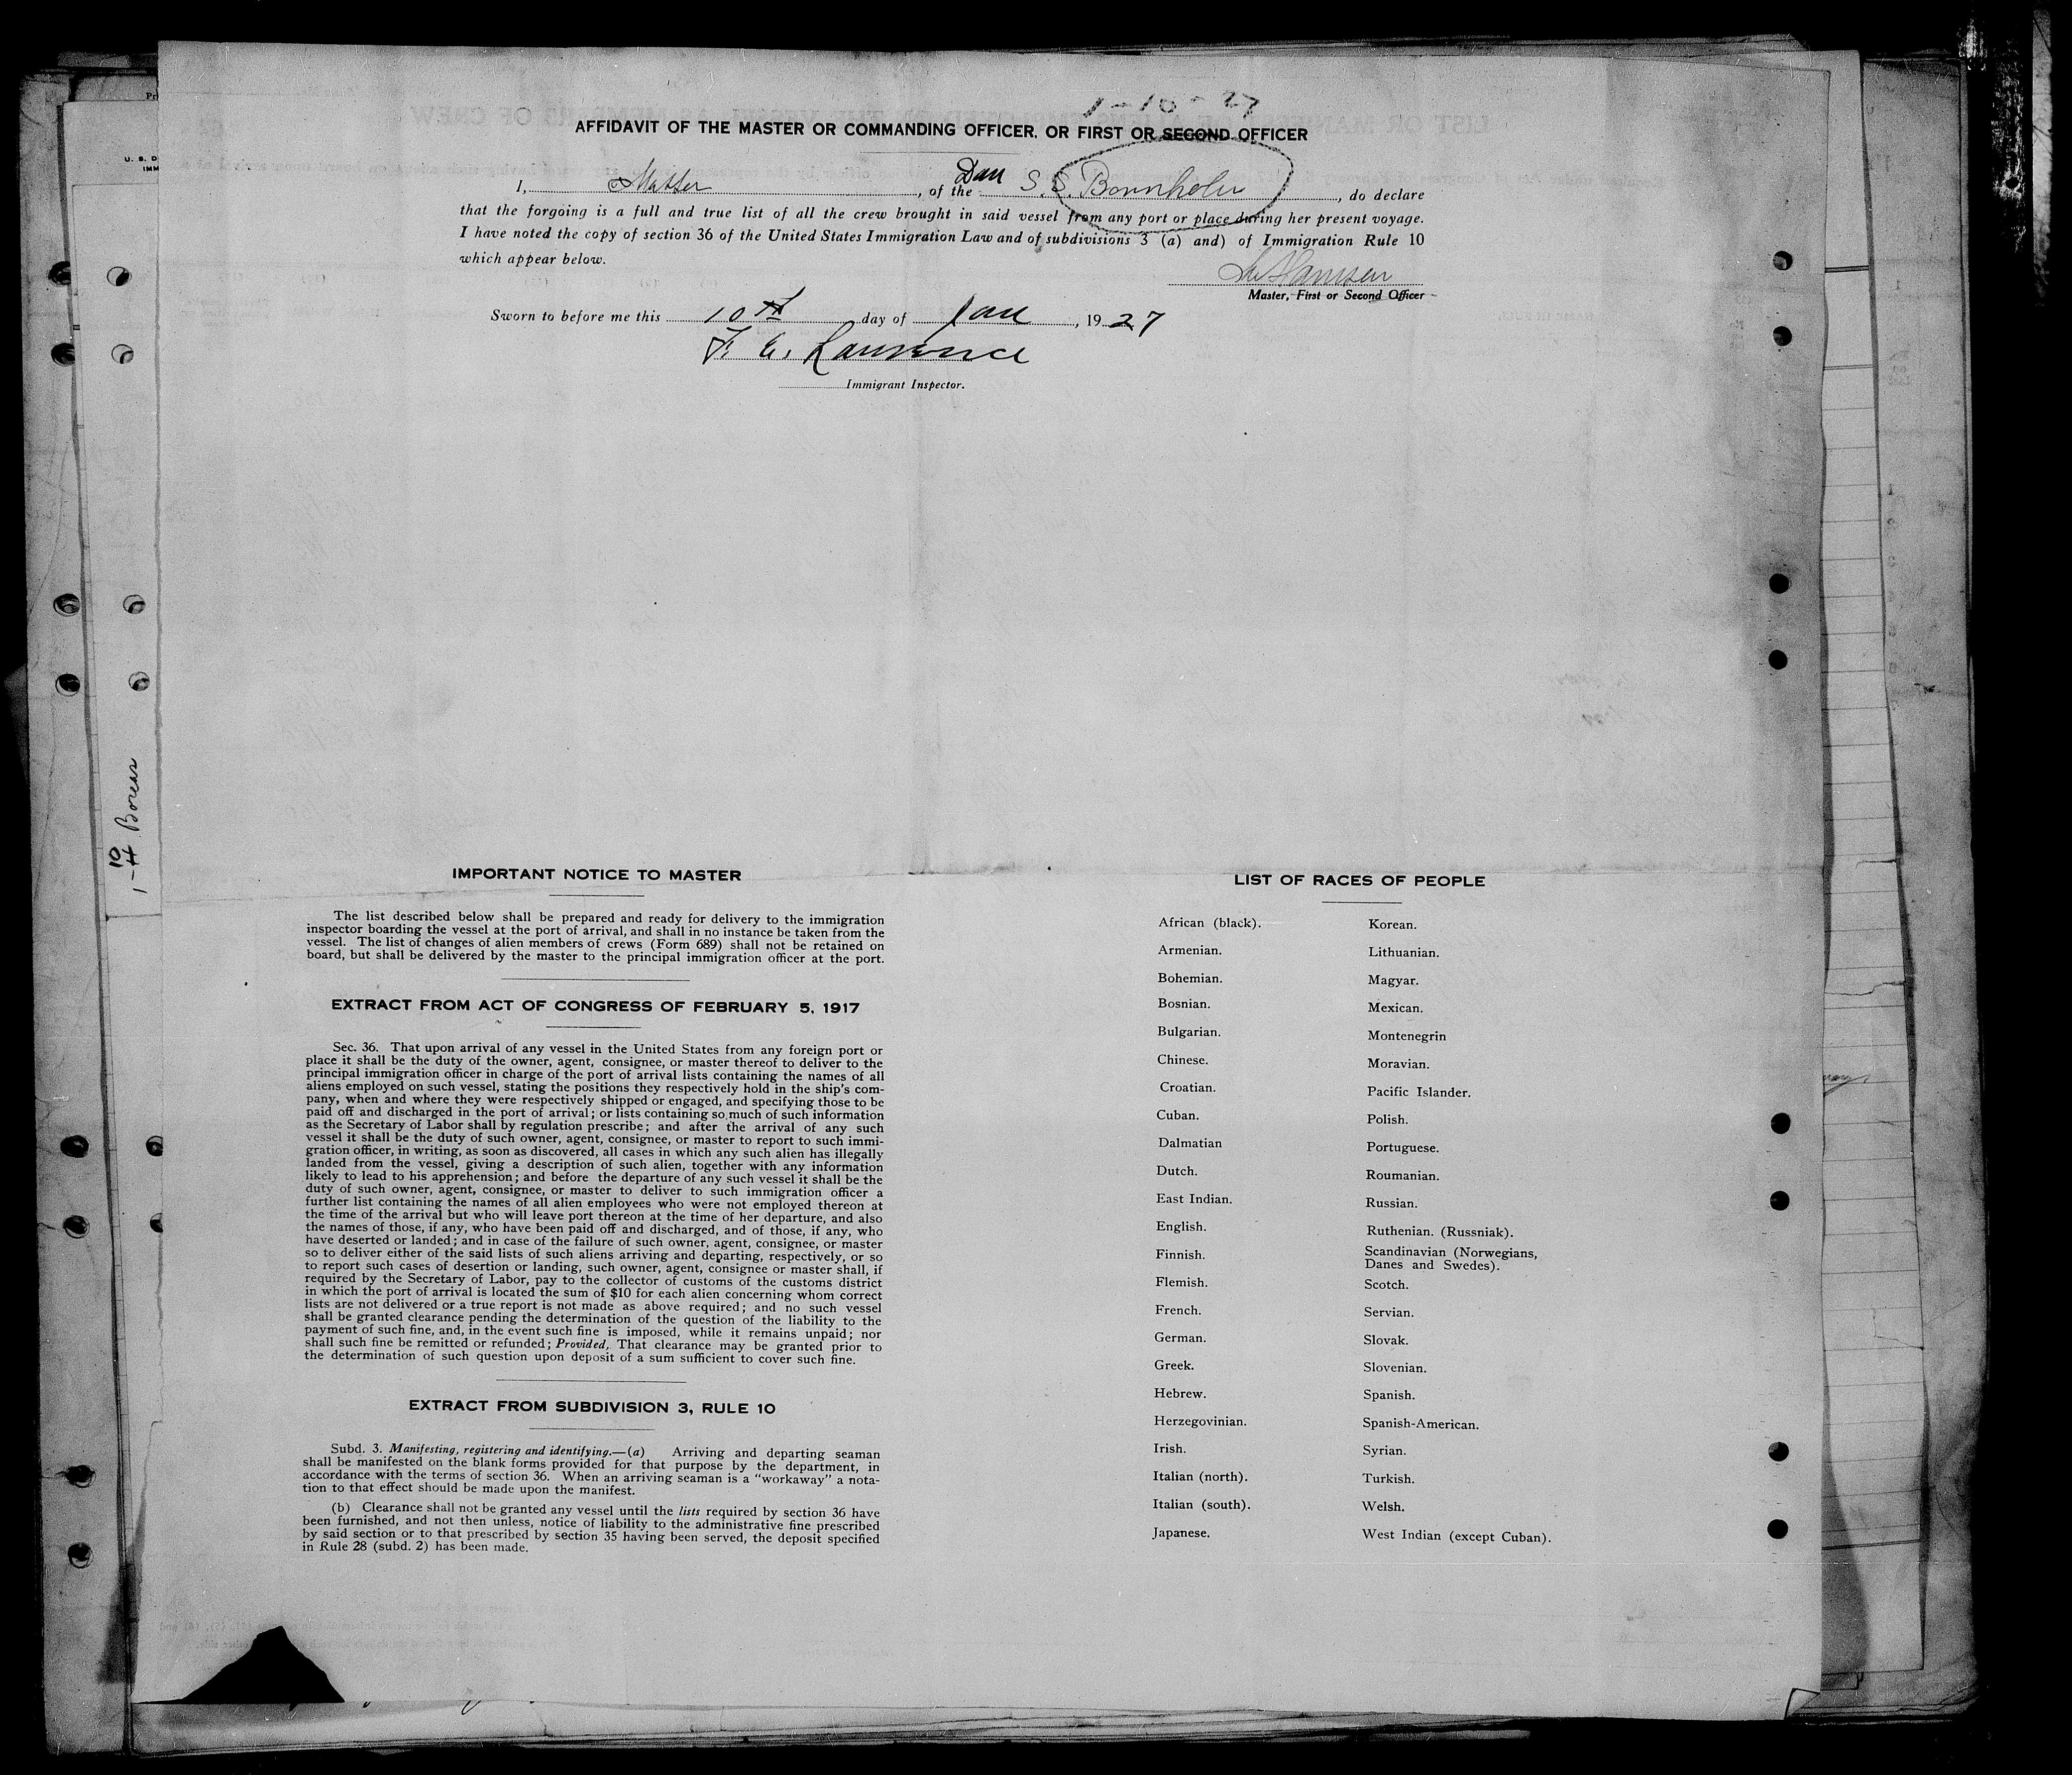 1-10-27
AFFIDAVIT OF THE MASTER OR COMMANDING OFFICER, OR FIRST OR SECOND OFFICER
I, Master, of the Dan S.S. Bornholm, do declare
that the forgoing is a full and true list of all the crew brought in said vessel from any port or place during her present voyage.
I have noted the copy of section 36 of the United States Immigration Law and of subdivisions 3 (a) and) of Immigration Rule 10
which appear below.
Master, First or Second Officer
Sworn to before me this 10th day of Jan, 1927
Lawrence
Immigrant Inspector.
1-10 Boreas
IMPORTANT NOTICE TO MASTER
The list described below shall be prepared and ready for delivery to the immigration
inspector boarding the vessel at the port of arrival, and shall in no instance be taken from the
vessel. The list of changes of alien members of crews (Form 689) shall not be retained on
board, but shall be delivered by the master to the principal immigration officer at the port.
EXTRACT FROM ACT OF CONGRESS OF FEBRUARY 5, 1917
Sec. 36. That upon arrival of any vessel in the United States from any foreign port or
place it shall be the duty of the owner, agent, consignee, or master thereof to deliver to the
principal immigration officer in charge of the port of arrival lists containing the names of all
aliens employed on such vessel, stating the positions they respectively hold in the ship's com-
pany, when and where they were respectively shipped or engaged, and specifying those to be
paid off and discharged in the port of arrival; or lists containing so much of such information
as the Secretary of Labor shall by regulation prescribe; and after the arrival of any such
vessel it shall be the duty of such owner, agent, consignee, or master to report to such immi-
gration officer, in writing, as soon as discovered, all cases in which any such alien has illegally
landed from the vessel, giving a description of such alien, together with any information
likely to lead to his apprehension; and before the departure of any such vessel it shall be the
duty of such owner, agent, consignee, or master to deliver to such immigration officer a
further list containing the names of all alien employees who were not employed thereon at
the time of the arrival but who will leave port thereon at the time of her departure, and also
the names of those, if any, who have been paid off and discharged, and of those, if any, who
have deserted or landed; and in case of the failure of such owner, agent, consignee, or master
so to deliver either of the said lists of such aliens arriving and departing, respectively, or so
to report such cases of desertion or landing, such owner, agent, consignee or master shall, if
required by the Secretary of Labor, pay to the collector of customs of the customs district
in which the port of arrival is located the sum of $10 for each alien concerning whom correct
lists are not delivered or a true report is not made as above required; and no such vessel
shall be granted clearance pending the determination of the question of the liability to the
payment of such fine, and, in the event such fine is imposed, while it remains unpaid; nor
shall such fine be remitted or refunded; Provided, That clearance may be granted prior to
the determination of such question upon deposit of a sum sufficient to cover such fine.
EXTRACT FROM SUBDIVISION 3, RULE 10
Subd. 3. Manifesting, registering and identifying.—(a) Arriving and departing seaman
shall be manifested on the blank forms provided for that purpose by the department, in
accordance with the terms of section 36. When an arriving seaman is a "workaway" a nota-
tion to that effect should be made upon the manifest.
(b) Clearance shall not be granted any vessel until the lists required by section 36 have
been furnished, and not then unless, notice of liability to the administrative fine prescribed
by said section or to that prescribed by section 35 having been served, the deposit specified
in Rule 28 (subd. 2) has been made.
LIST OF RACES OF PEOPLE
African (black).
Armenian.
Bohemian.
Bosnian.
Bulgarian.
Chinese.
Croatian.
Cuban.
Dalmatian
Dutch.
East Indian.
English.
Finnish.
Flemish.
French.
German.
Greek.
Hebrew.
Herzegovinian.
Irish.
Italian (north).
Italian (south).
Japanese.
Korean.
Lithuanian.
Magyar.
Mexican.
Montenegrin
Moravian.
Pacific Islander.
Polish.
Portuguese.
Roumanian.
Russian.
Ruthenian. (Russniak).
Scandinavian (Norwegians,
Danes and Swedes).
Scotch.
Servian.
Slovak.
Slovenian.
Spanish.
Spanish-American.
Syrian.
Turkish.
Welsh.
West Indian (except Cuban).